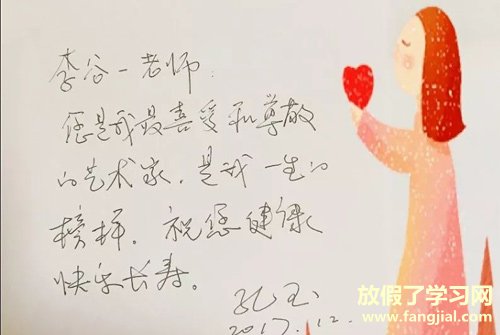 李谷一老师:
您是我最喜爱和尊敬
的艺术家,是我一生的
榜样。祝您健康
快乐长寿。
孔玉
2017.12.
放假了学习网
www.fangjial.com